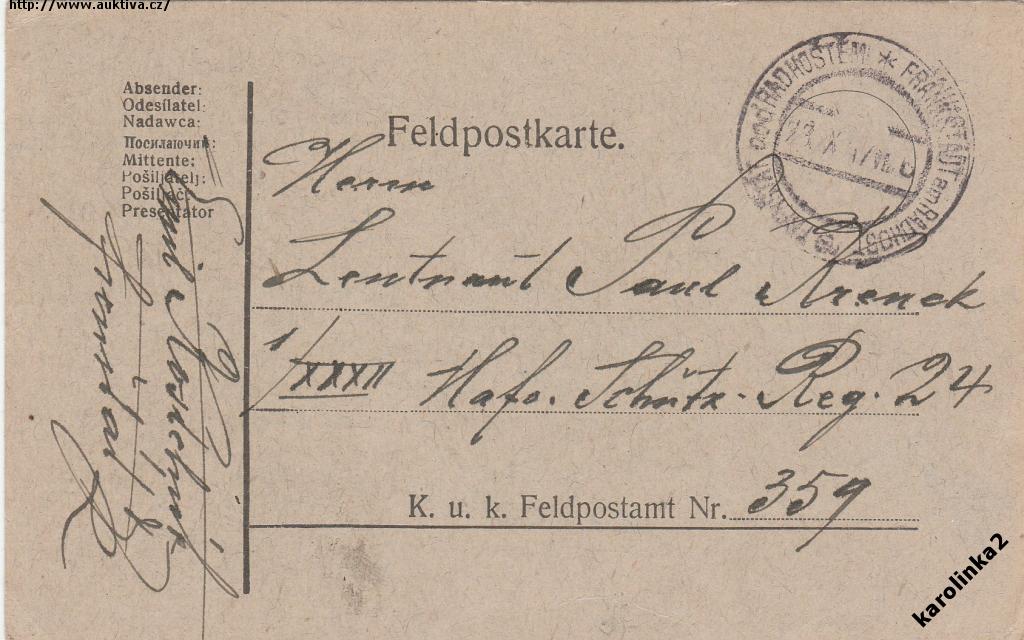 http://www.auktiva.cz/
Absender:
Odesílatel:
Nadawca:
Посилаючий:
Mittente:
Pošiljatelj:
Pošiljač:
Presentator
Feldpostkarte.
pod RADHOŠTĚM * FRANKSTADT am RADHOST
Herrn
Leutnant Paul
1/XXXII Schütz. Reg. 24
K. u. k. Feldpostamt Nr. 359
karolinka2